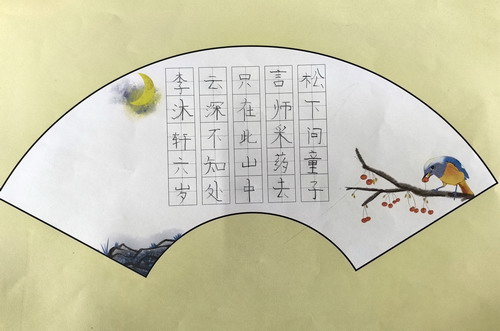 松下问童子
言师采药去
只在此山中
云深不知处
李沐轩六岁